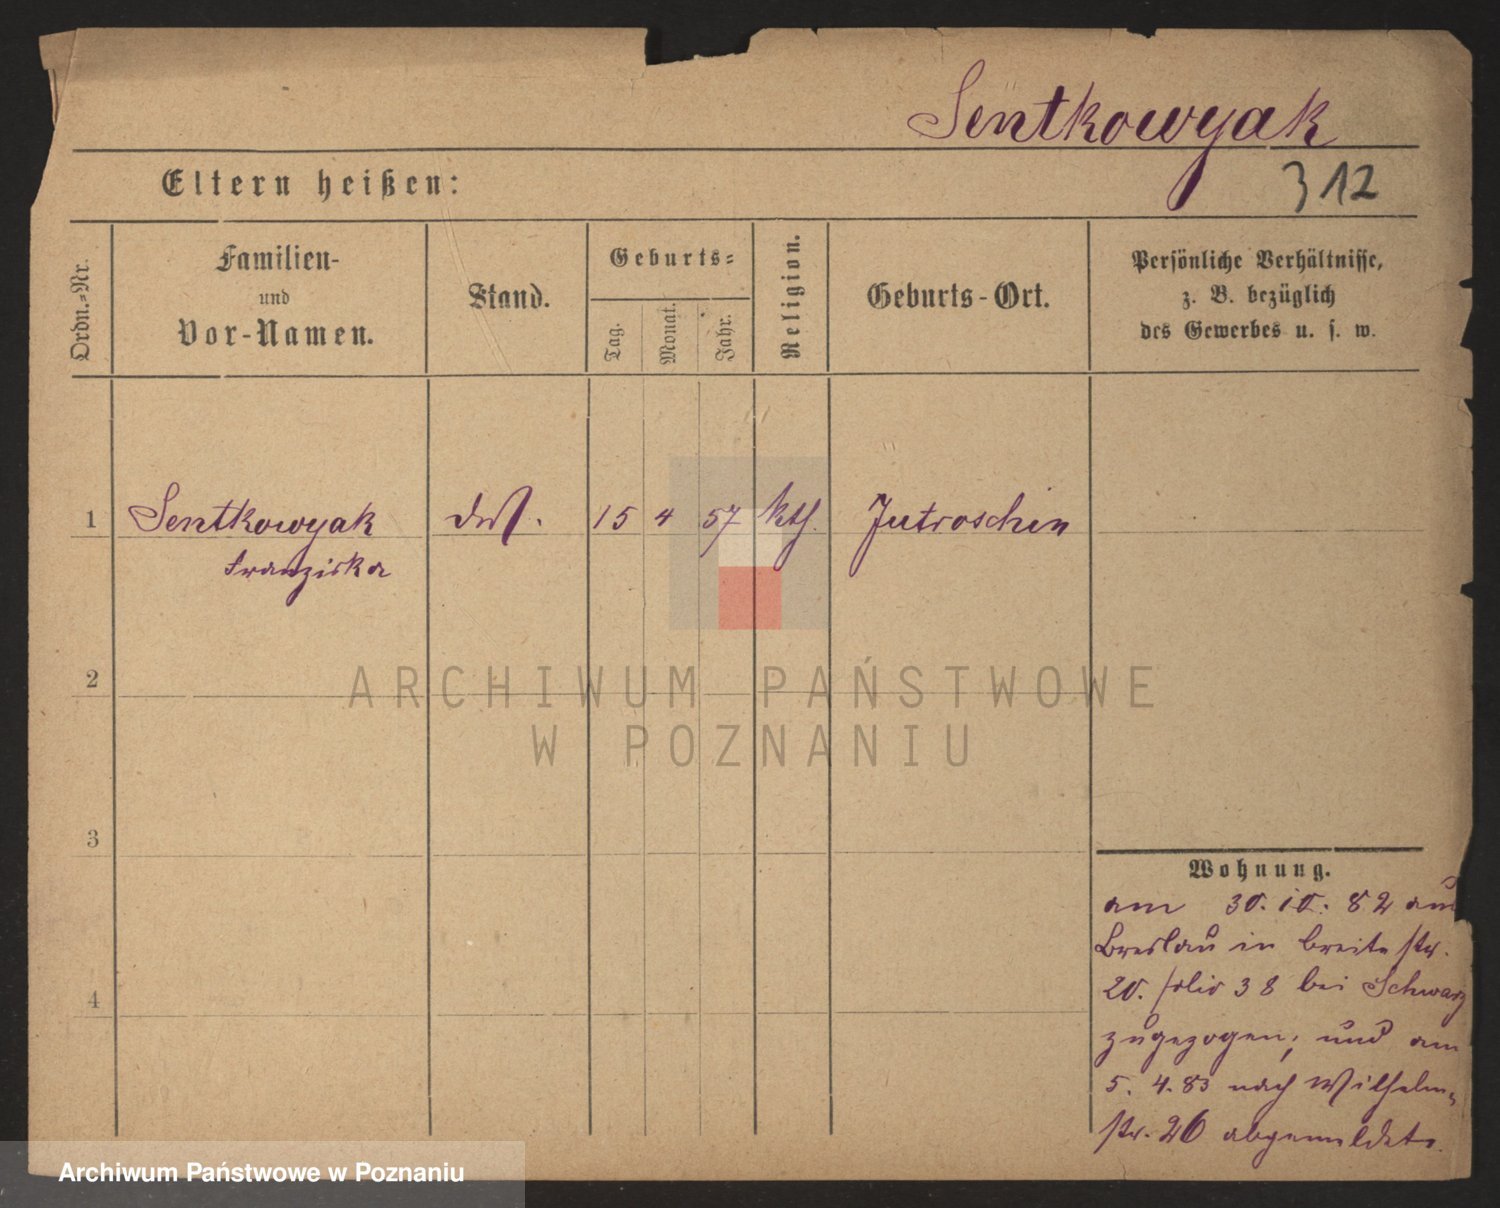 Sentkowyak
312
Eltern heißen:
Ordn.=Nr.
Familien-
und
Vor-Namen.
Stand.
Geburts=
Tag.
Monat.
Jahr.
Religion.
Geburts-Ort.
Persönliche Verhältnisse,
z. B. bezüglich
des Gewerbes u. s. w.
1 Sentkowyak 15 4 57 kth. Jutroschin
Franziska
2
3
4
Wohnung.
am 30. 10. 82 aus
Breslau in breite str.
20. folio 38 bei Schwarz
zugezogen; und am
5. 4. 83 nach Wilhelm-
str. 26 abgemeldet.
ARCHIWUM PAŃSTWOWE
W POZNANIU
Archiwum Państwowe w Poznaniu